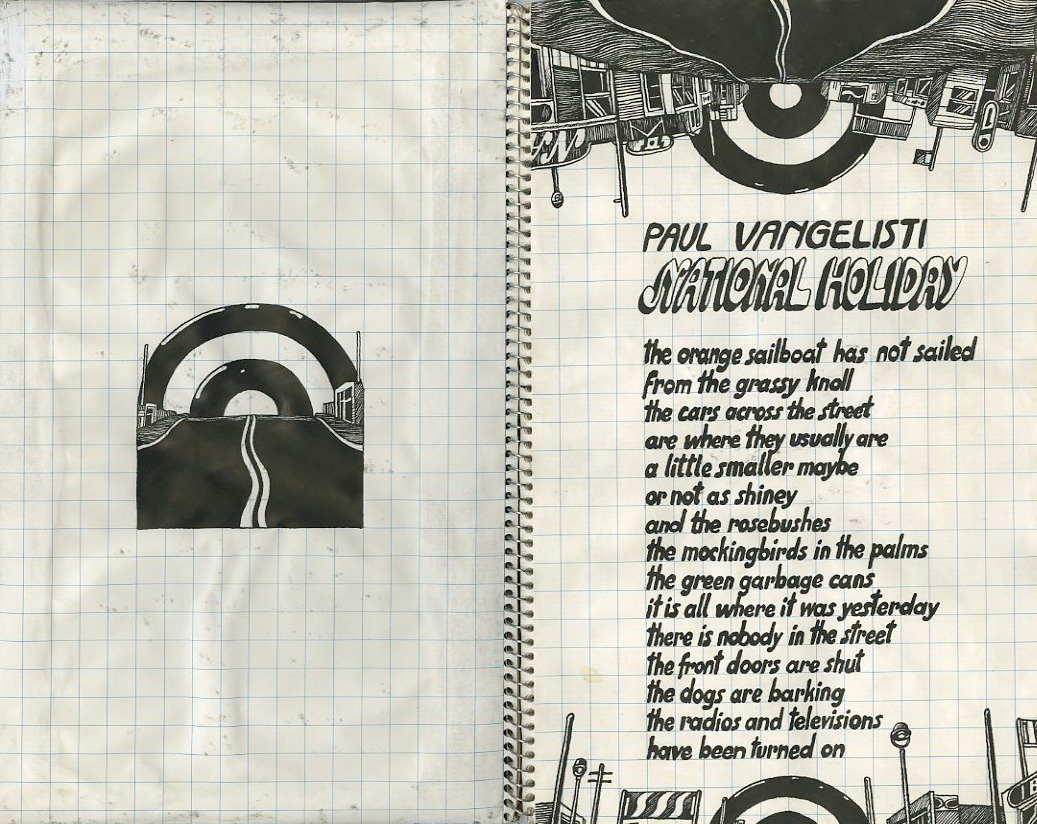 PAUL VANGELISTI
NATIONAL HOLIDAY
the orange sailboat has not sailed
from the grassy knoll
the cars across the street
are where they usually are
a little smaller maybe
or not as shiney
and the rosebushes
the mockingbirds in the palms
the green garbage cans
it is all where it was yesterday
there is nobody in the street
the front doors are shut
the dogs are barking
the radios and televisions
have been turned on